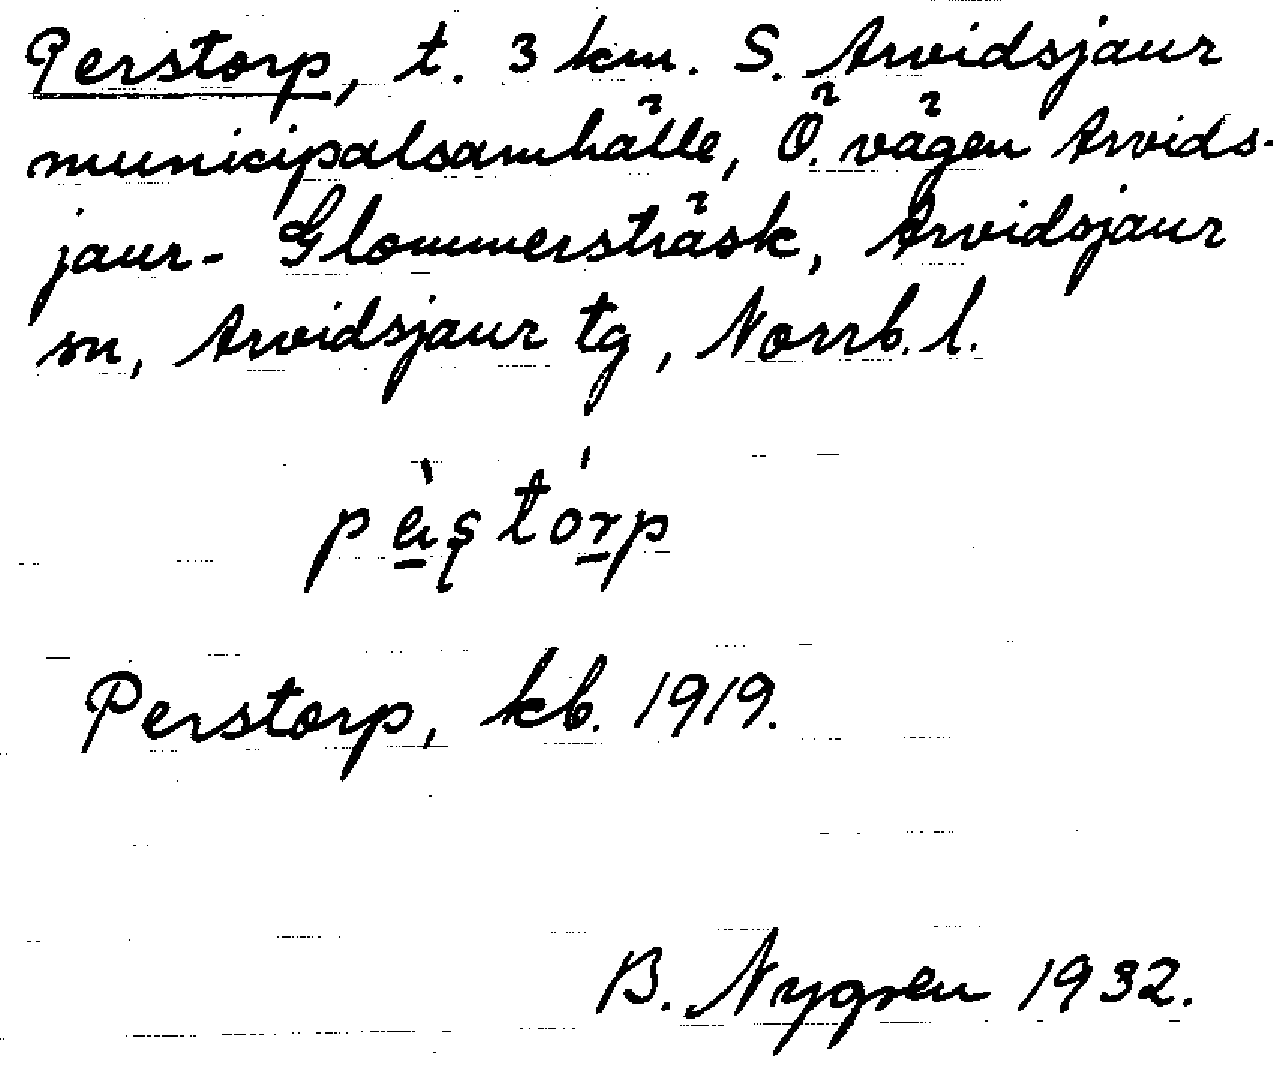 Perstorp, t. 3 km. S. Arvidsjaur
municipalsamhälle, Ö. vägen Arvids-
jaur- Glommersträsk, Arvidsjaur
sn, Arvidsjaur tg, Norrb. l.
Perstorp, kb. 1919.
B. Nygren 1932.